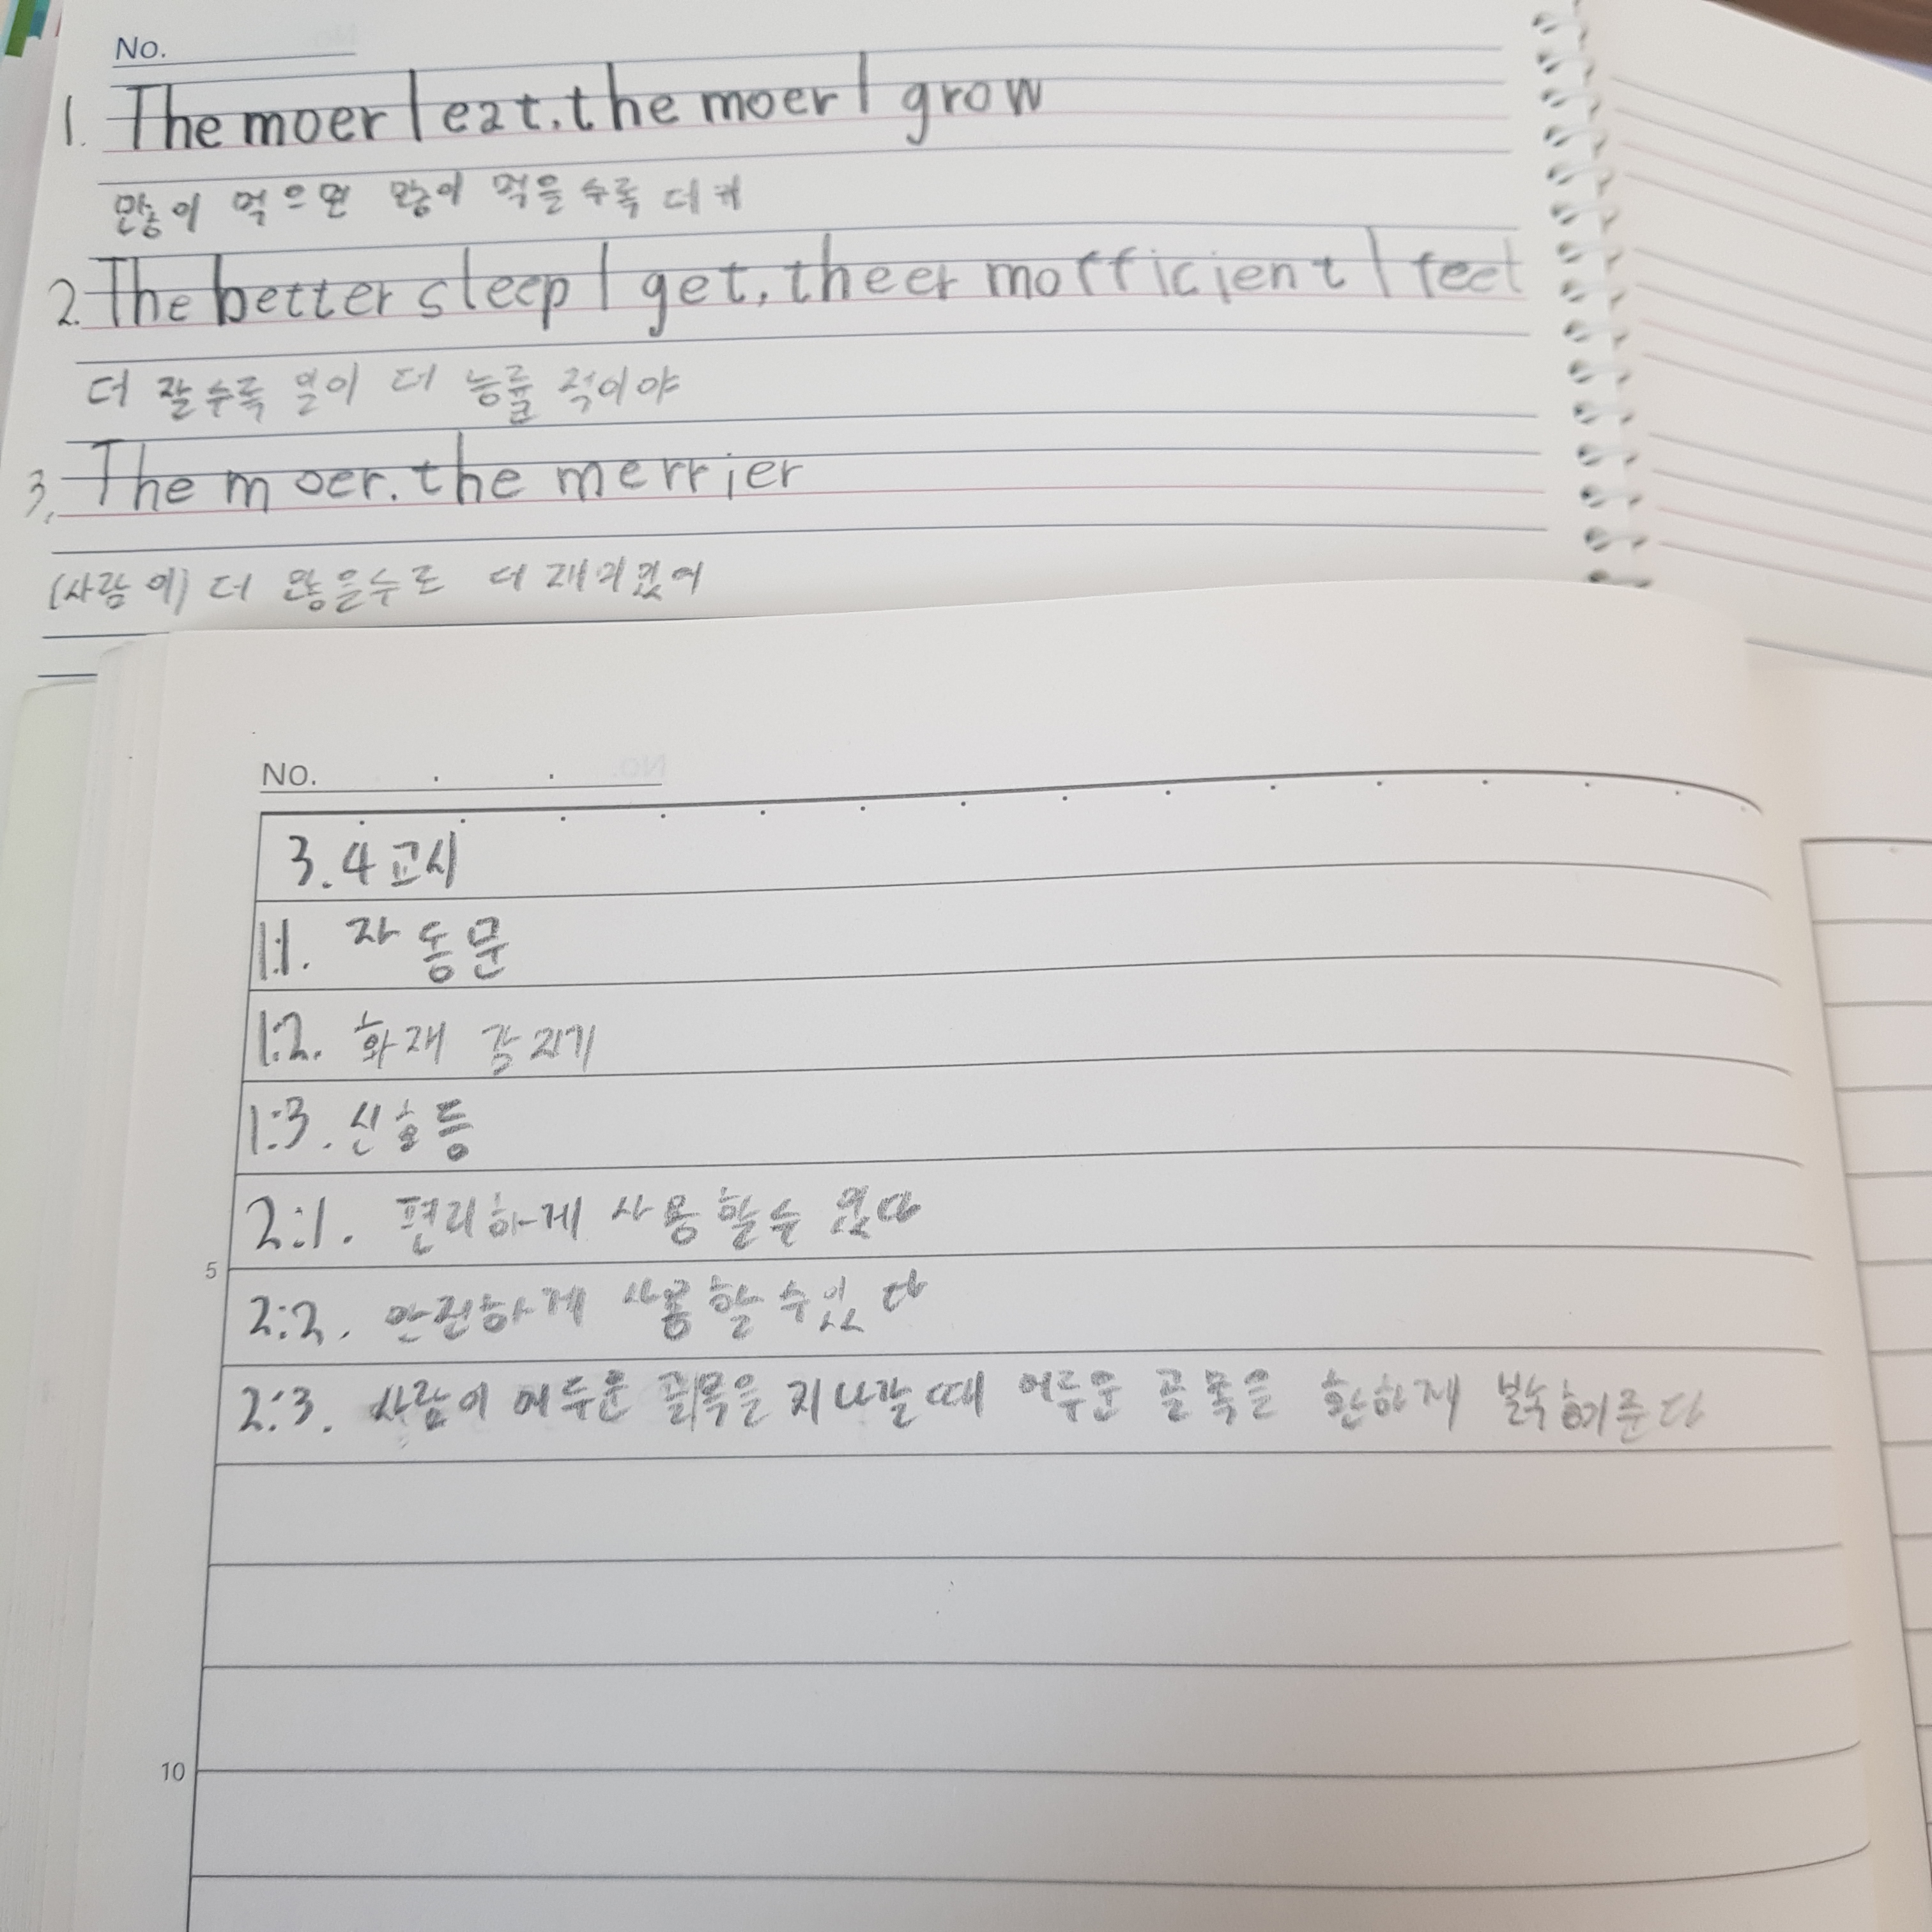 No.
1. The moer I eat. the moer I grow
많이 먹으면 많이 먹을수록 더커
2. The better sleep I get, theer mofficient I feel
더 잘수록 일이 더 능률 적이야
3. The moer. the merrier
(사람이) 더 많을수로 더 재미있어
No.
3.4교시
1:1. 자동문
1:2. 화재 감지기
1:3. 신호등
2:1. 편리하게 사용할수 있다
5
2:2. 안전하게 사용할수있다
2:3. 사람이 어두운 골목을 지나갈때 어두운 골목을 환하게
10